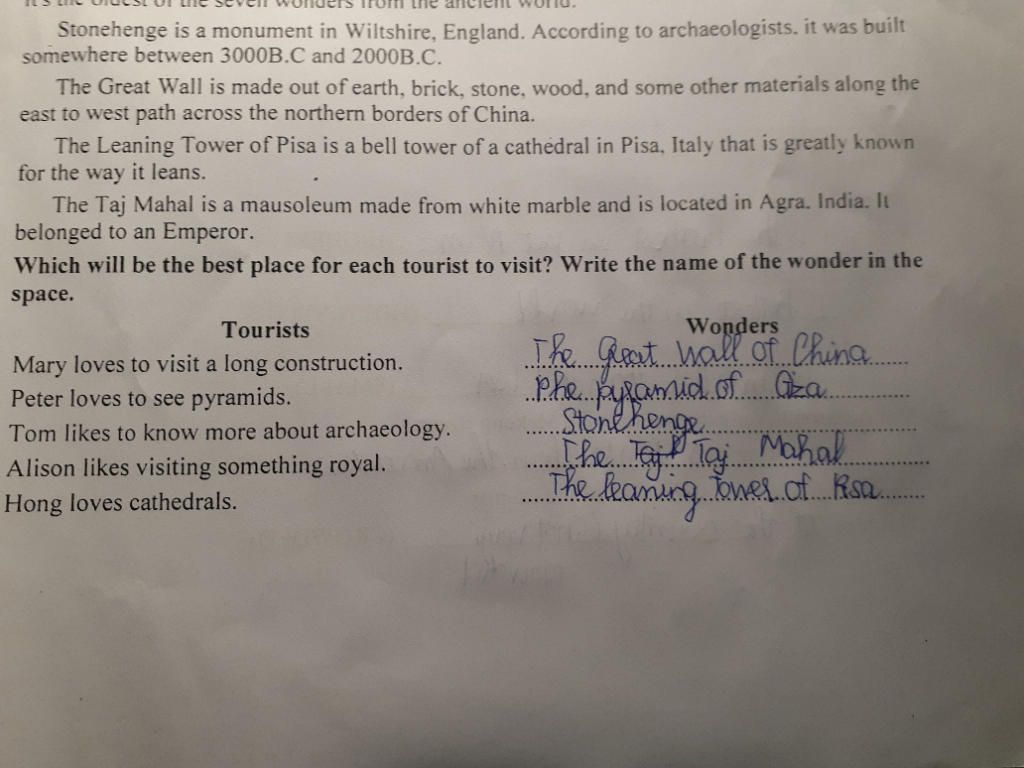 it's the oldest of the seven wonders from the ancient world.
Stonehenge is a monument in Wiltshire, England. According to archaeologists. it was built
somewhere between 3000B.C and 2000B.C.
The Great Wall is made out of earth, brick, stone, wood, and some other materials along the
east to west path across the northern borders of China.
The Leaning Tower of Pisa is a bell tower of a cathedral in Pisa, Italy that is greatly known
for the way it leans.
The Taj Mahal is a mausoleum made from white marble and is located in Agra. India. It
belonged to an Emperor.
Which will be the best place for each tourist to visit? Write the name of the wonder in the
space.
Tourists Wonders
Mary loves to visit a long construction. The Great Wall of China
Peter loves to see pyramids. Phe pyramid of Giza
Tom likes to know more about archaeology. Stonehenge
Alison likes visiting something royal. The Taj Mahal
Hong loves cathedrals. The leaning Tower of Pisa